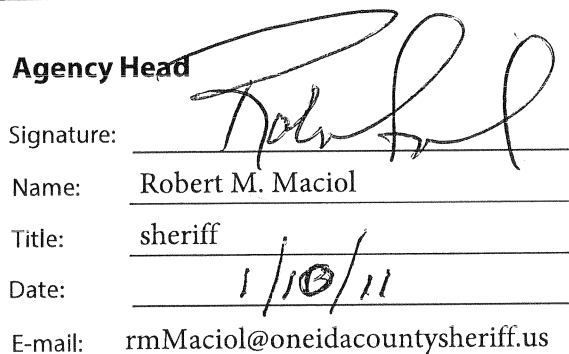 Agency Head
Signature:
Name: Robert M. Maciol
Title: sheriff
Date: 1/10/11
E-mail: rmMaciol@oneidacountysheriff.us